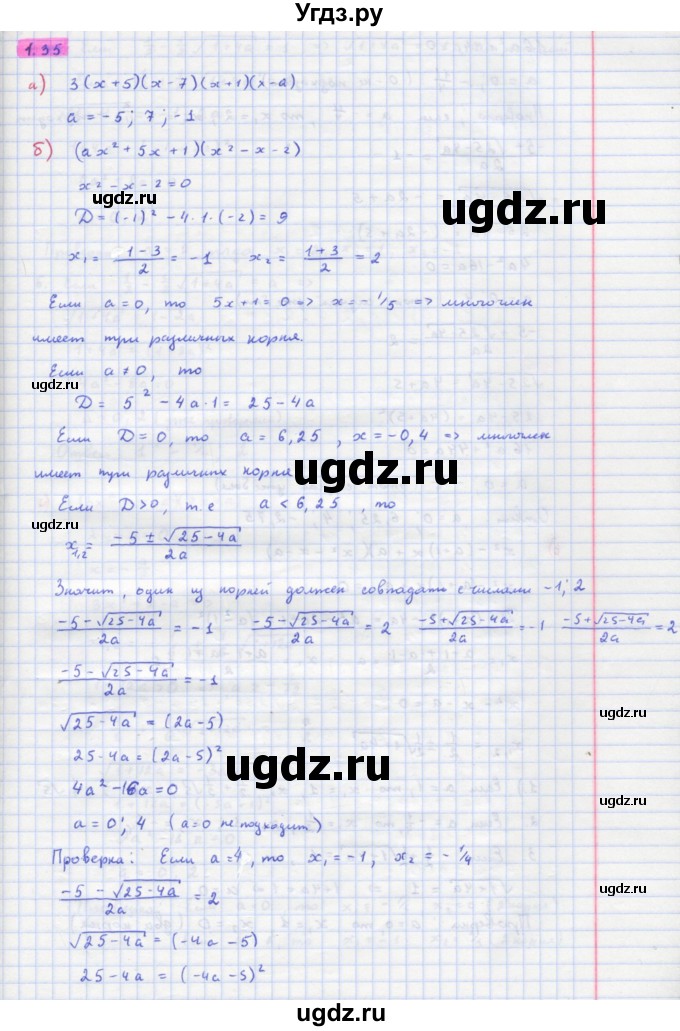 Угдз.ру
1.35
а) 3(x+5)(x-7)(x+1)(x-a)
a = -5; 7; -1
б) (ax² + 5x + 1)(x² - x - 2)
x² - x - 2 = 0
ugdz.ru
ugdz.ru
D = (-1)² - 4·1·(-2) = 9
x₁ = (1-3)/2 = -1 x₂ = (1+3)/2 = 2
Если a = 0, то 5x + 1 = 0 => x = -1/5 => многочлен
имеет три различных корня.
Если a ≠ 0, то
ugdz.ru
D = 5² - 4a·1 = 25 - 4a
Если D = 0, то a = 6,25, x = -0,4 => многочлен
имеет три различных корня
ugdz.ru
Если D > 0, т.е a < 6,25, то
ugdz.ru
x₁,₂ = (-5 ± √(25-4a))/2a
Значит, один из корней должен совпадать с числами -1; 2
(-5-√(25-4a))/2a = -1 (-5-√(25-4a))/2a = 2 (-5+√(25-4a))/2a = -1 (-5+√(25-4a))/2a = 2
(-5-√(25-4a))/2a = -1
√(25-4a) = (2a-5)
ugdz.ru
25-4a = (2a-5)²
ugdz.ru
4a² - 16a = 0
a = 0; 4 (a=0 не подходит)
Проверка: Если a = 4, то x₁ = -1, x₂ = -1/4
(-5-√(25-4a))/2a = 2
ugdz.ru
√(25-4a) = (-4a-5)
ugdz.ru
25-4a = (-4a-5)²
ugdz.ru
ugdz.ru